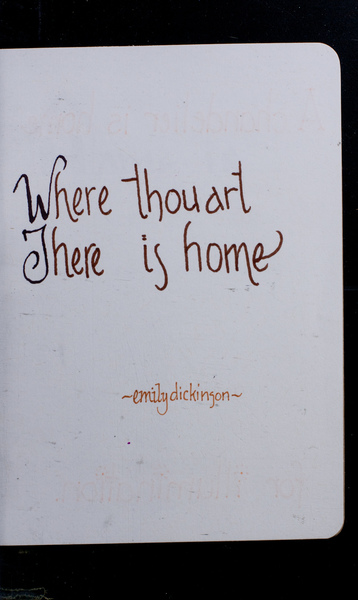 Where thou art
There is home
~emily dickinson~